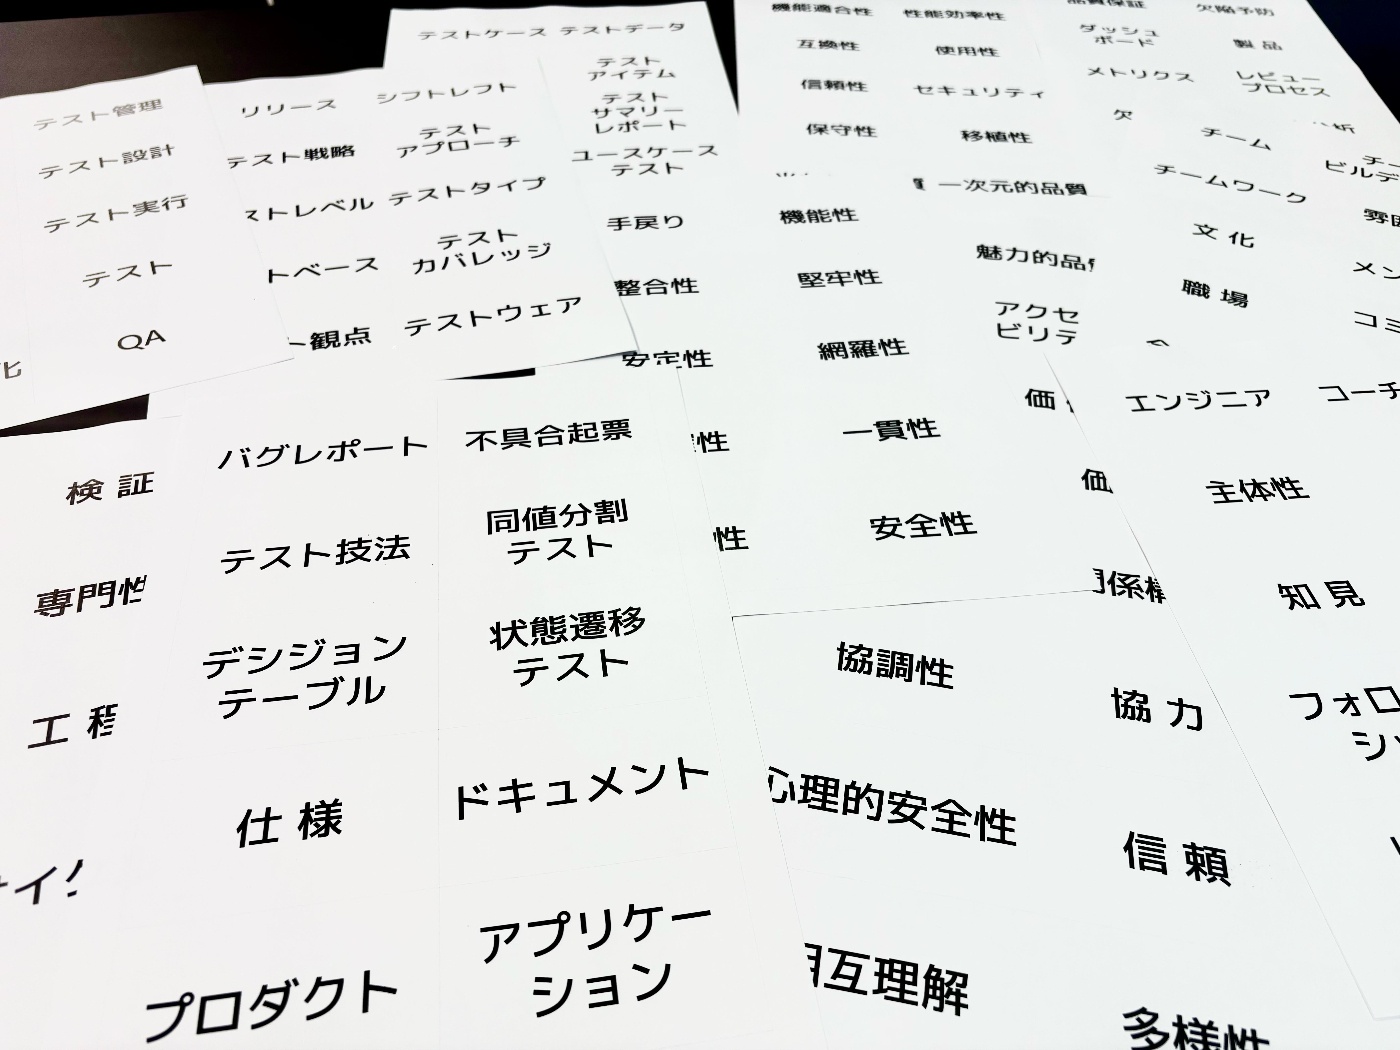 テスト管理
テスト設計
テスト実行
テスト
QA
化
リリース
シフトレフト
テスト戦略
テスト
アプローチ
ストレベル
テストタイプ
トベース
テスト
カバレッジ
ト観点
テストウェア
テストケース
テストデータ
テスト
アイテム
テスト
サマリー
レポート
ユースケース
テスト
手戻り
整合性
安定性
性
性
機能適合性
性能効率性
互換性
使用性
信頼性
セキュリティ
保守性
移植性
一次元的品質
機能性
魅力的品
堅牢性
アクセ
ビリテ
網羅性
価
一貫性
価
安全性
係
品質保証
欠陥予防
ダッシュ
ボード
製品
メトリクス
レビュー
プロセス
欠
析
チーム
チー
ビルデ
チームワーク
文化
メン
職場
コミ
エンジニア
コーチ
主体性
知見
フォロ
シ
検証
専門性
工程
バグレポート
不具合起票
テスト技法
同値分割
テスト
デシジョン
テーブル
状態遷移
テスト
仕様
ドキュメント
プロダクト
アプリケー
ション
協調性
協力
心理的安全性
信頼
互理解
多様性